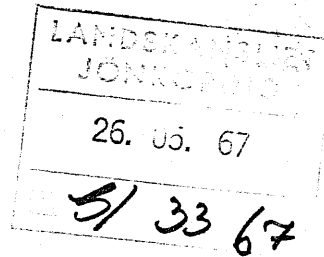 LANDSKANSLIET
JÖNKÖPING
26. 05. 67
5/ 33 67